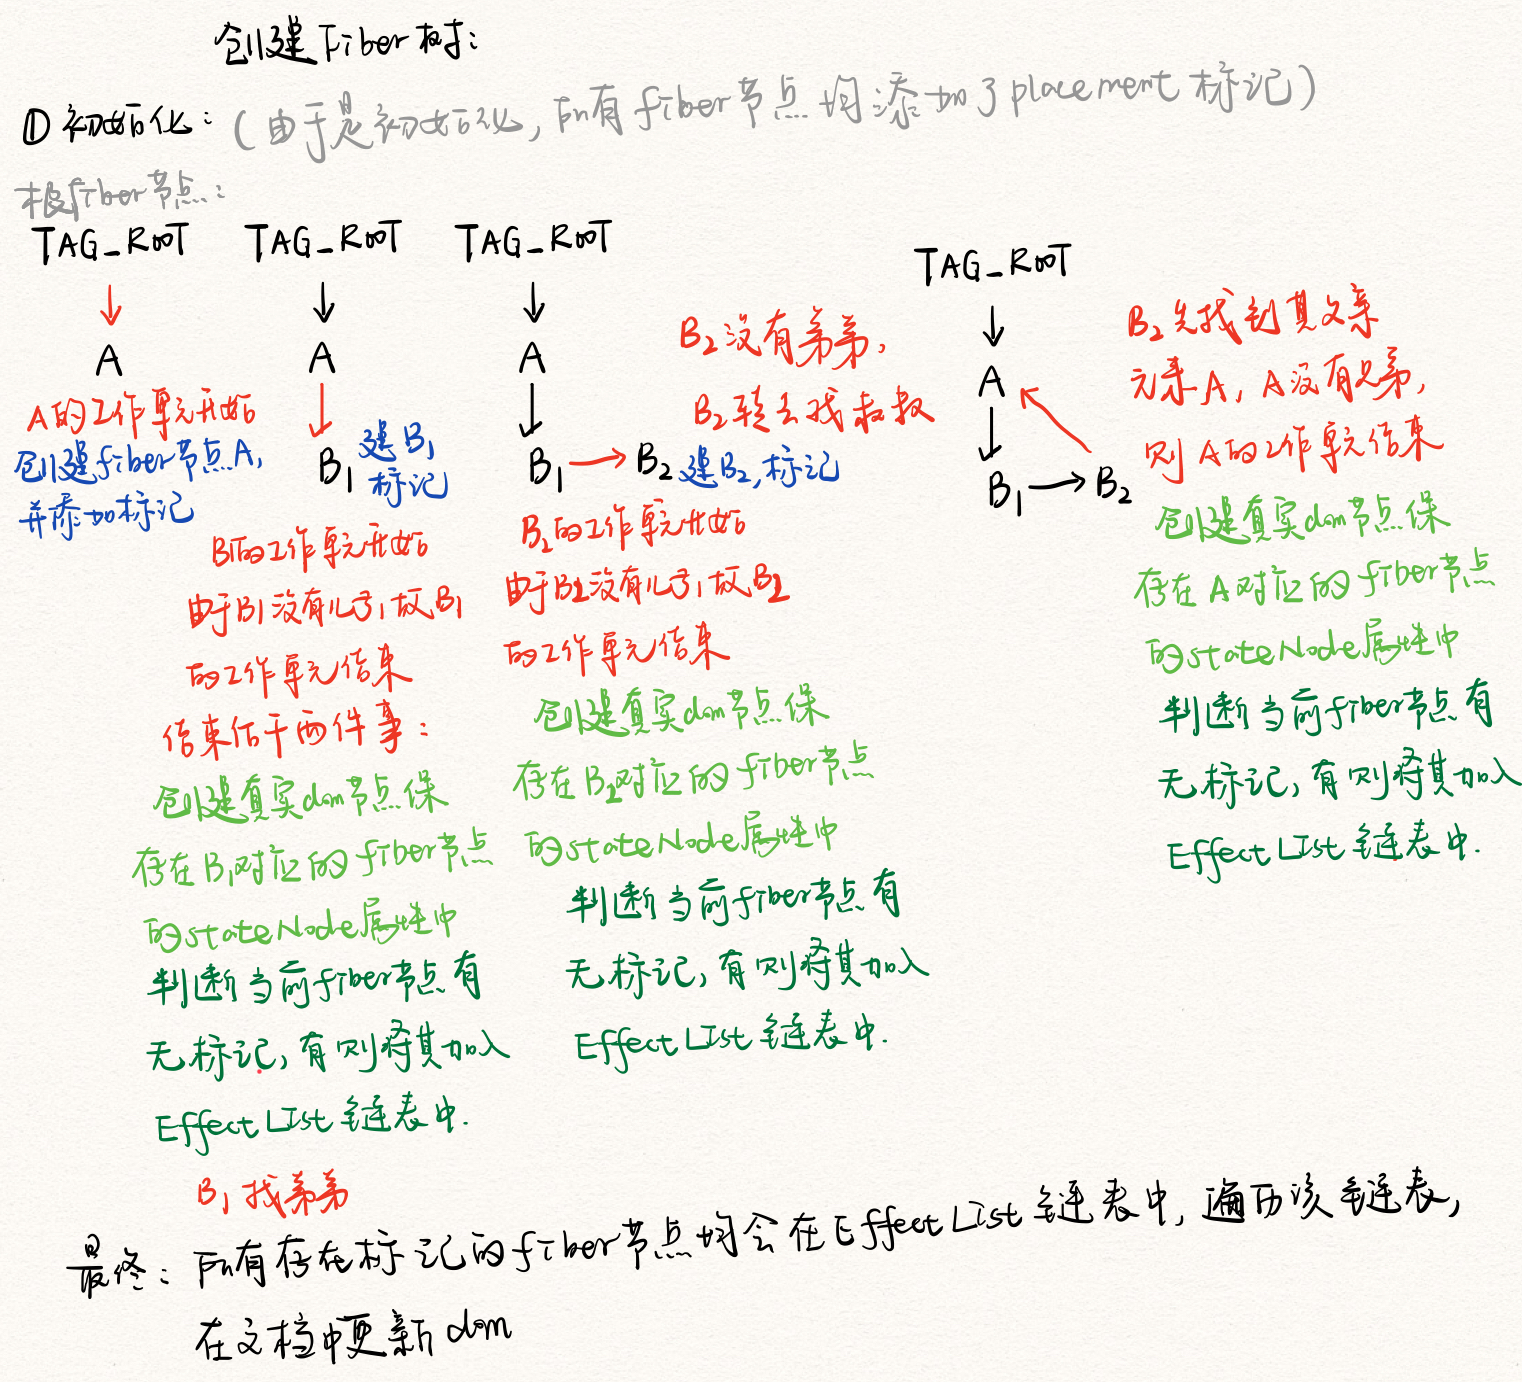 创建Fiber树:
① 初始化: (由于是初始化,所有fiber节点均添加了placement标记)
根fiber节点:
TAG_ROOT
A
A的工作单元开始
创建fiber节点A,
并添加标记
TAG_ROOT
A
B1
建B1,
标记
B1的工作单元开始
由于B1没有儿子,故B1
的工作单元结束
结束后干两件事:
创建真实dom节点保
存在B1对应的fiber节点
的stateNode属性中
判断当前fiber节点有
无标记,有则将其加入
Effect List 链表中.
B1找弟弟
TAG_ROOT
A
B1 B2
建B2,标记
B2的工作单元开始
由于B2没有儿子,故B2
的工作单元结束
创建真实dom节点保
存在B2对应的fiber节点
的stateNode属性中
判断当前fiber节点有
无标记,有则将其加入
Effect List 链表中.
B2没有弟弟,
B2转去找叔叔
TAG_ROOT
A
B1 B2
B2先找到其父亲
元素A, A没有兄弟,
则A的工作单元结束
创建真实dom节点保
存在A对应的fiber节点
的stateNode属性中
判断当前fiber节点有
无标记,有则将其加入
Effect List 链表中.
最终: 所有存在标记的fiber节点均会在Effect List 链表中, 遍历该链表,
在文档中更新dom